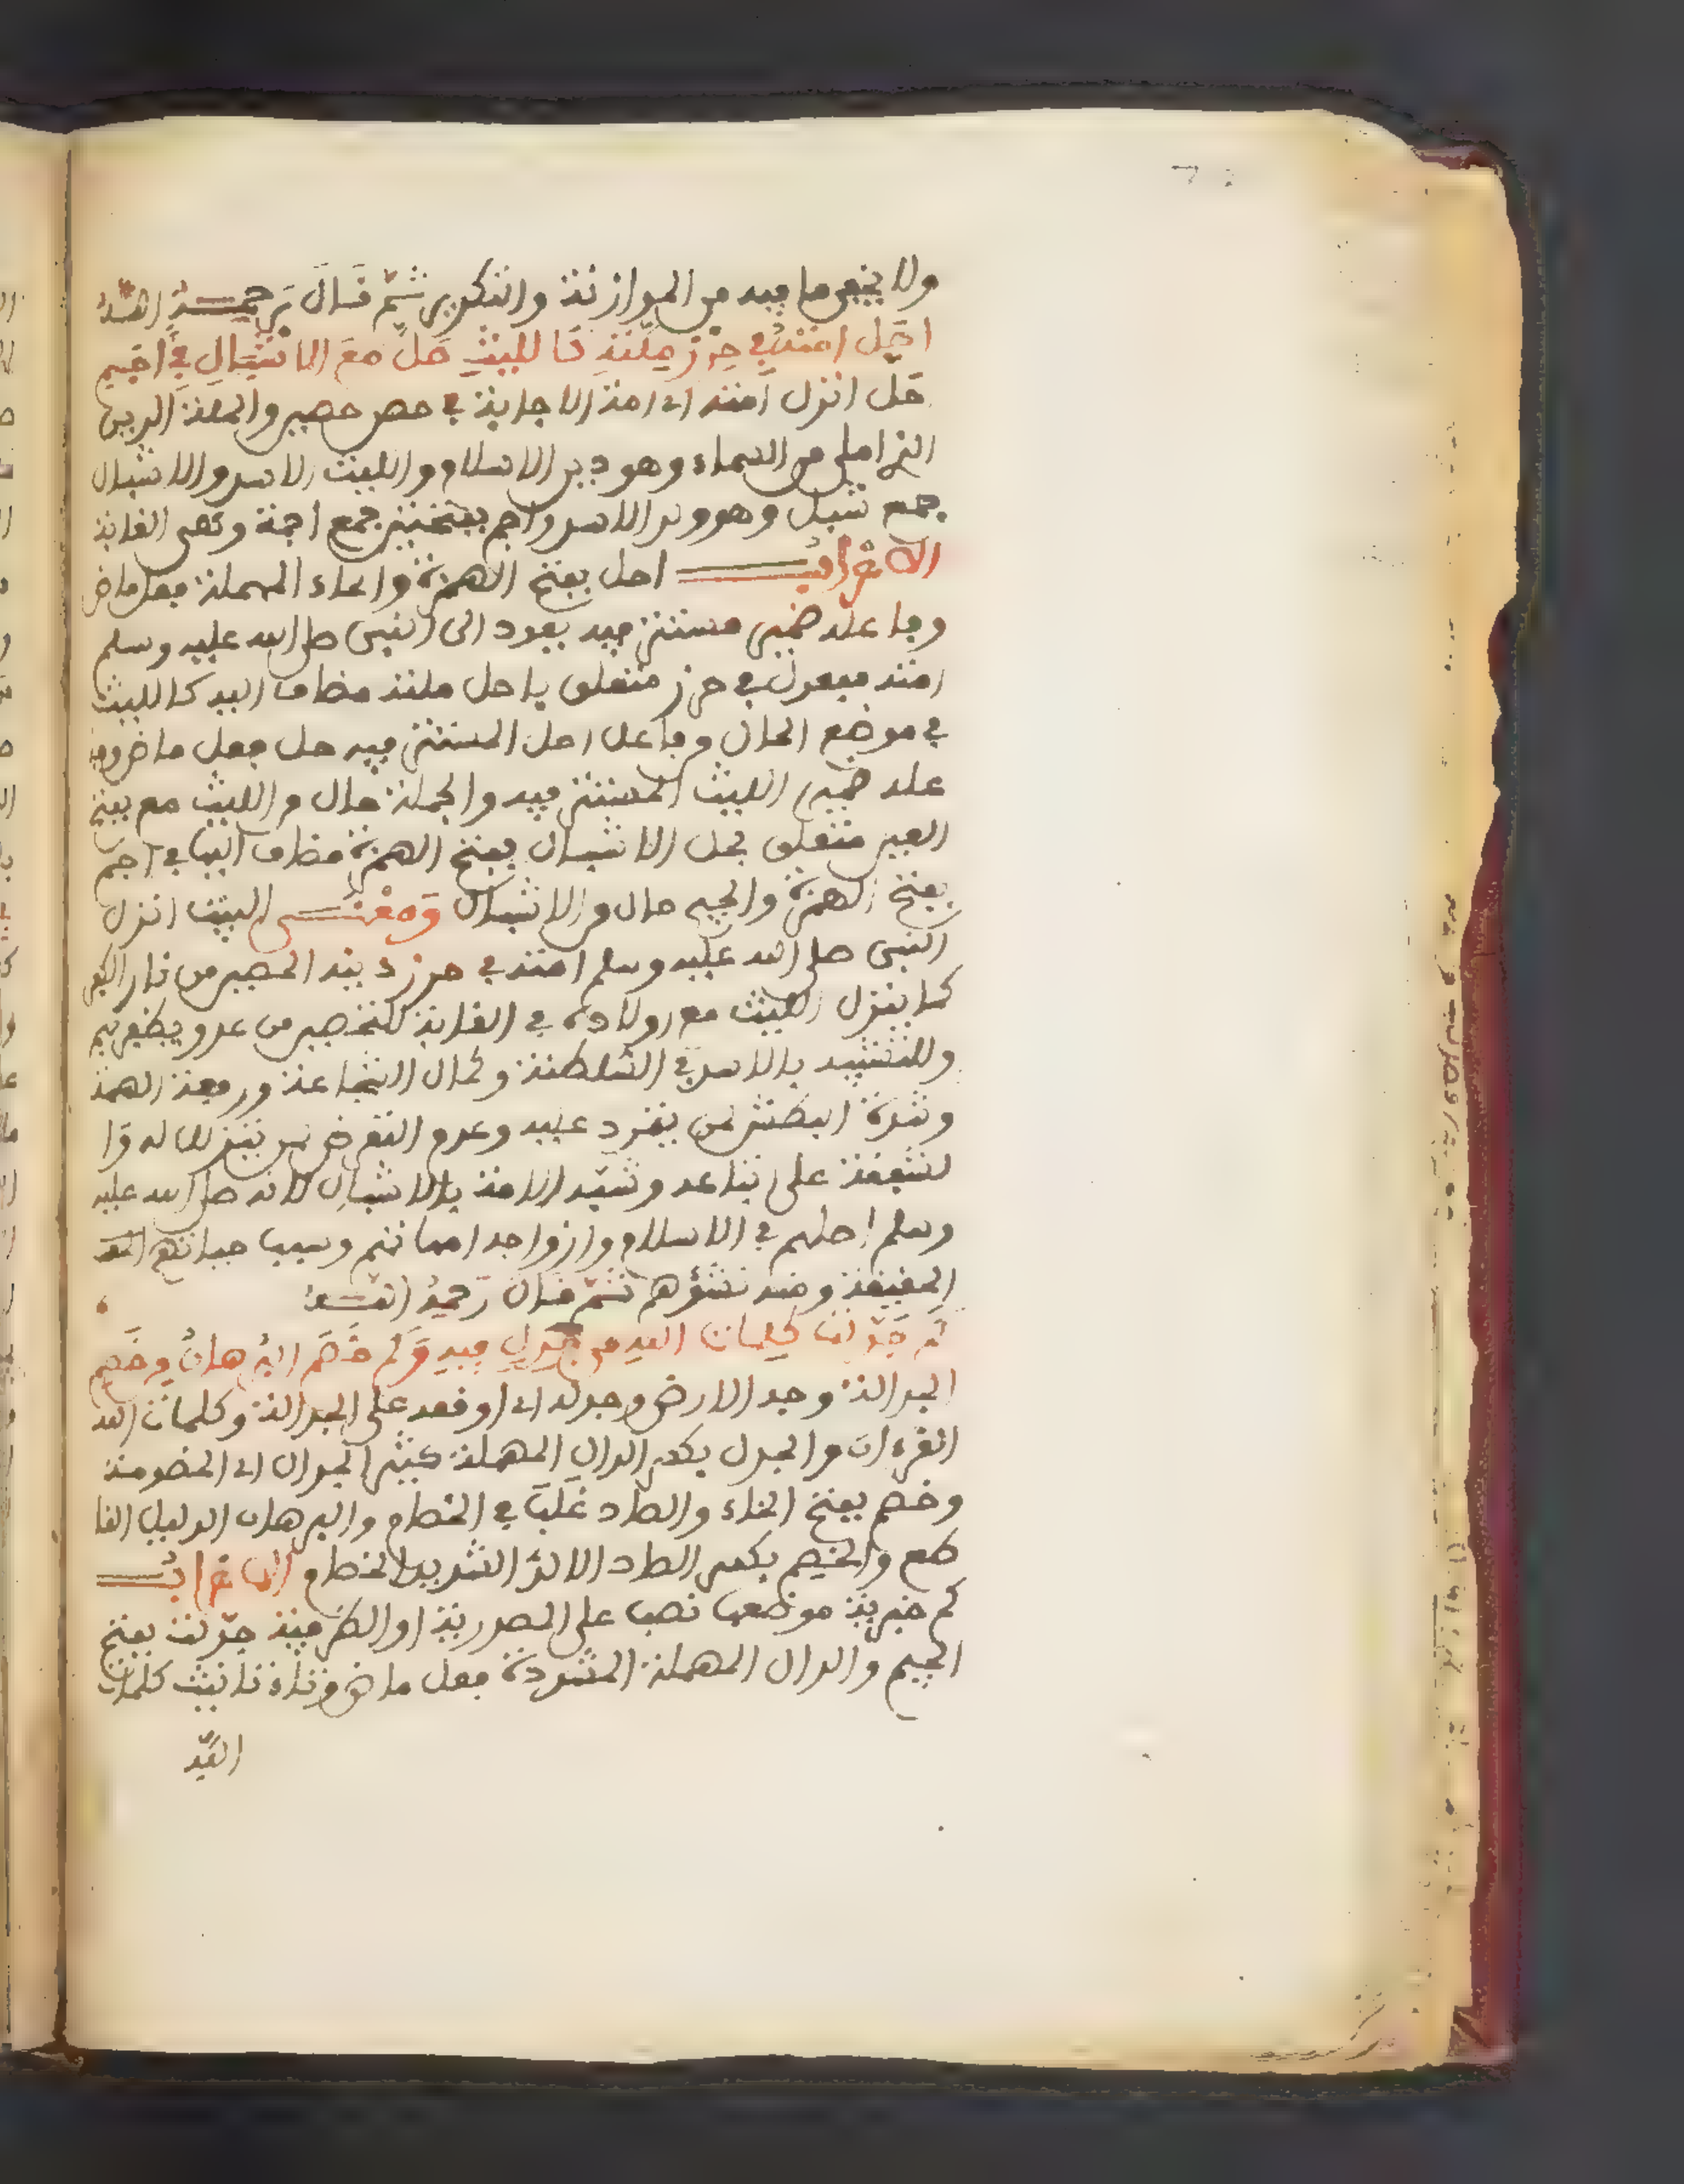 ولا يخفى ما فيه من الموازنة والتكرير ثم قال رحمه الله
احل امته في حرز ملته كالليث حل مع الاشبال في اجم
حل انزل امته اى امة الاجابة في حصن حصين والملة الدين
الذى املى من السماء وهو دين الاسلام والليث الاسد والاشبال
جمع شبل وهو ولد الاسد واجم بفتحتين جمع اجمة وهى الغابة
الاعراب احل بفتح الهمزة والحاء المهملة فعل ماض
وفاعله ضمير مستتر فيه يعود الى النبى صلى الله عليه وسلم
امته مفعول في حرز متعلق باحل ملته مضاف اليه كالليث
في موضع الحال وفاعل احل المستتر فيه حل فعل ماض وفا
عله ضمير الليث المستتر فيه والجملة حال من الليث مع بفتح
العين متعلق بحل الاشبال بفتح الهمزة مضاف اليها في اجم
بفتح الهمزة والجيم حال من الاشبال ومعنى البيت انزل
النبى صلى الله عليه وسلم امته في حرز دينه الحصين من نار الكفر
كما ينزل الليث مع اولاده في الغابة لتحصين من عدو يظفر بهم
وللتشبيه بالاسد في السلطنة وكمال الشجاعة ورفعة الهمة
وشدة البطش لمن يتمرد عليه وعدم التعرض لمن يتنزلل له وا
لشفقة على بناعه وشبه الامة بالاشبال لانه صلى الله عليه
وسلم احلهم في الاسلام وازواجه امهاتهم وسبب حياتهم
الحقيقة ومنه نشؤهم ثم قال رحمه الله
كم جدلت كلمات الله من جدل فيه وكم خصم البرهان من خصم
الجدالة وجه الارض وجدله اى اوقعه على الجدالة وكلمات الله
القرءان والجدل بكسر الدال المهملة كثير الجدال اى الخصومة
وخصم بفتح الخاء والصاد غلب في الخصام والبرهان الدليل القا
طع والخصم بكسر الصاد الالد الشديد الخصام الاعراب
كم خبرية موضعها نصب على المصدرية او الظرفية جدلت بفتح
الجيم والدال المهملة المشددة فعل ماض وتاءه تانيث كلمات
الله